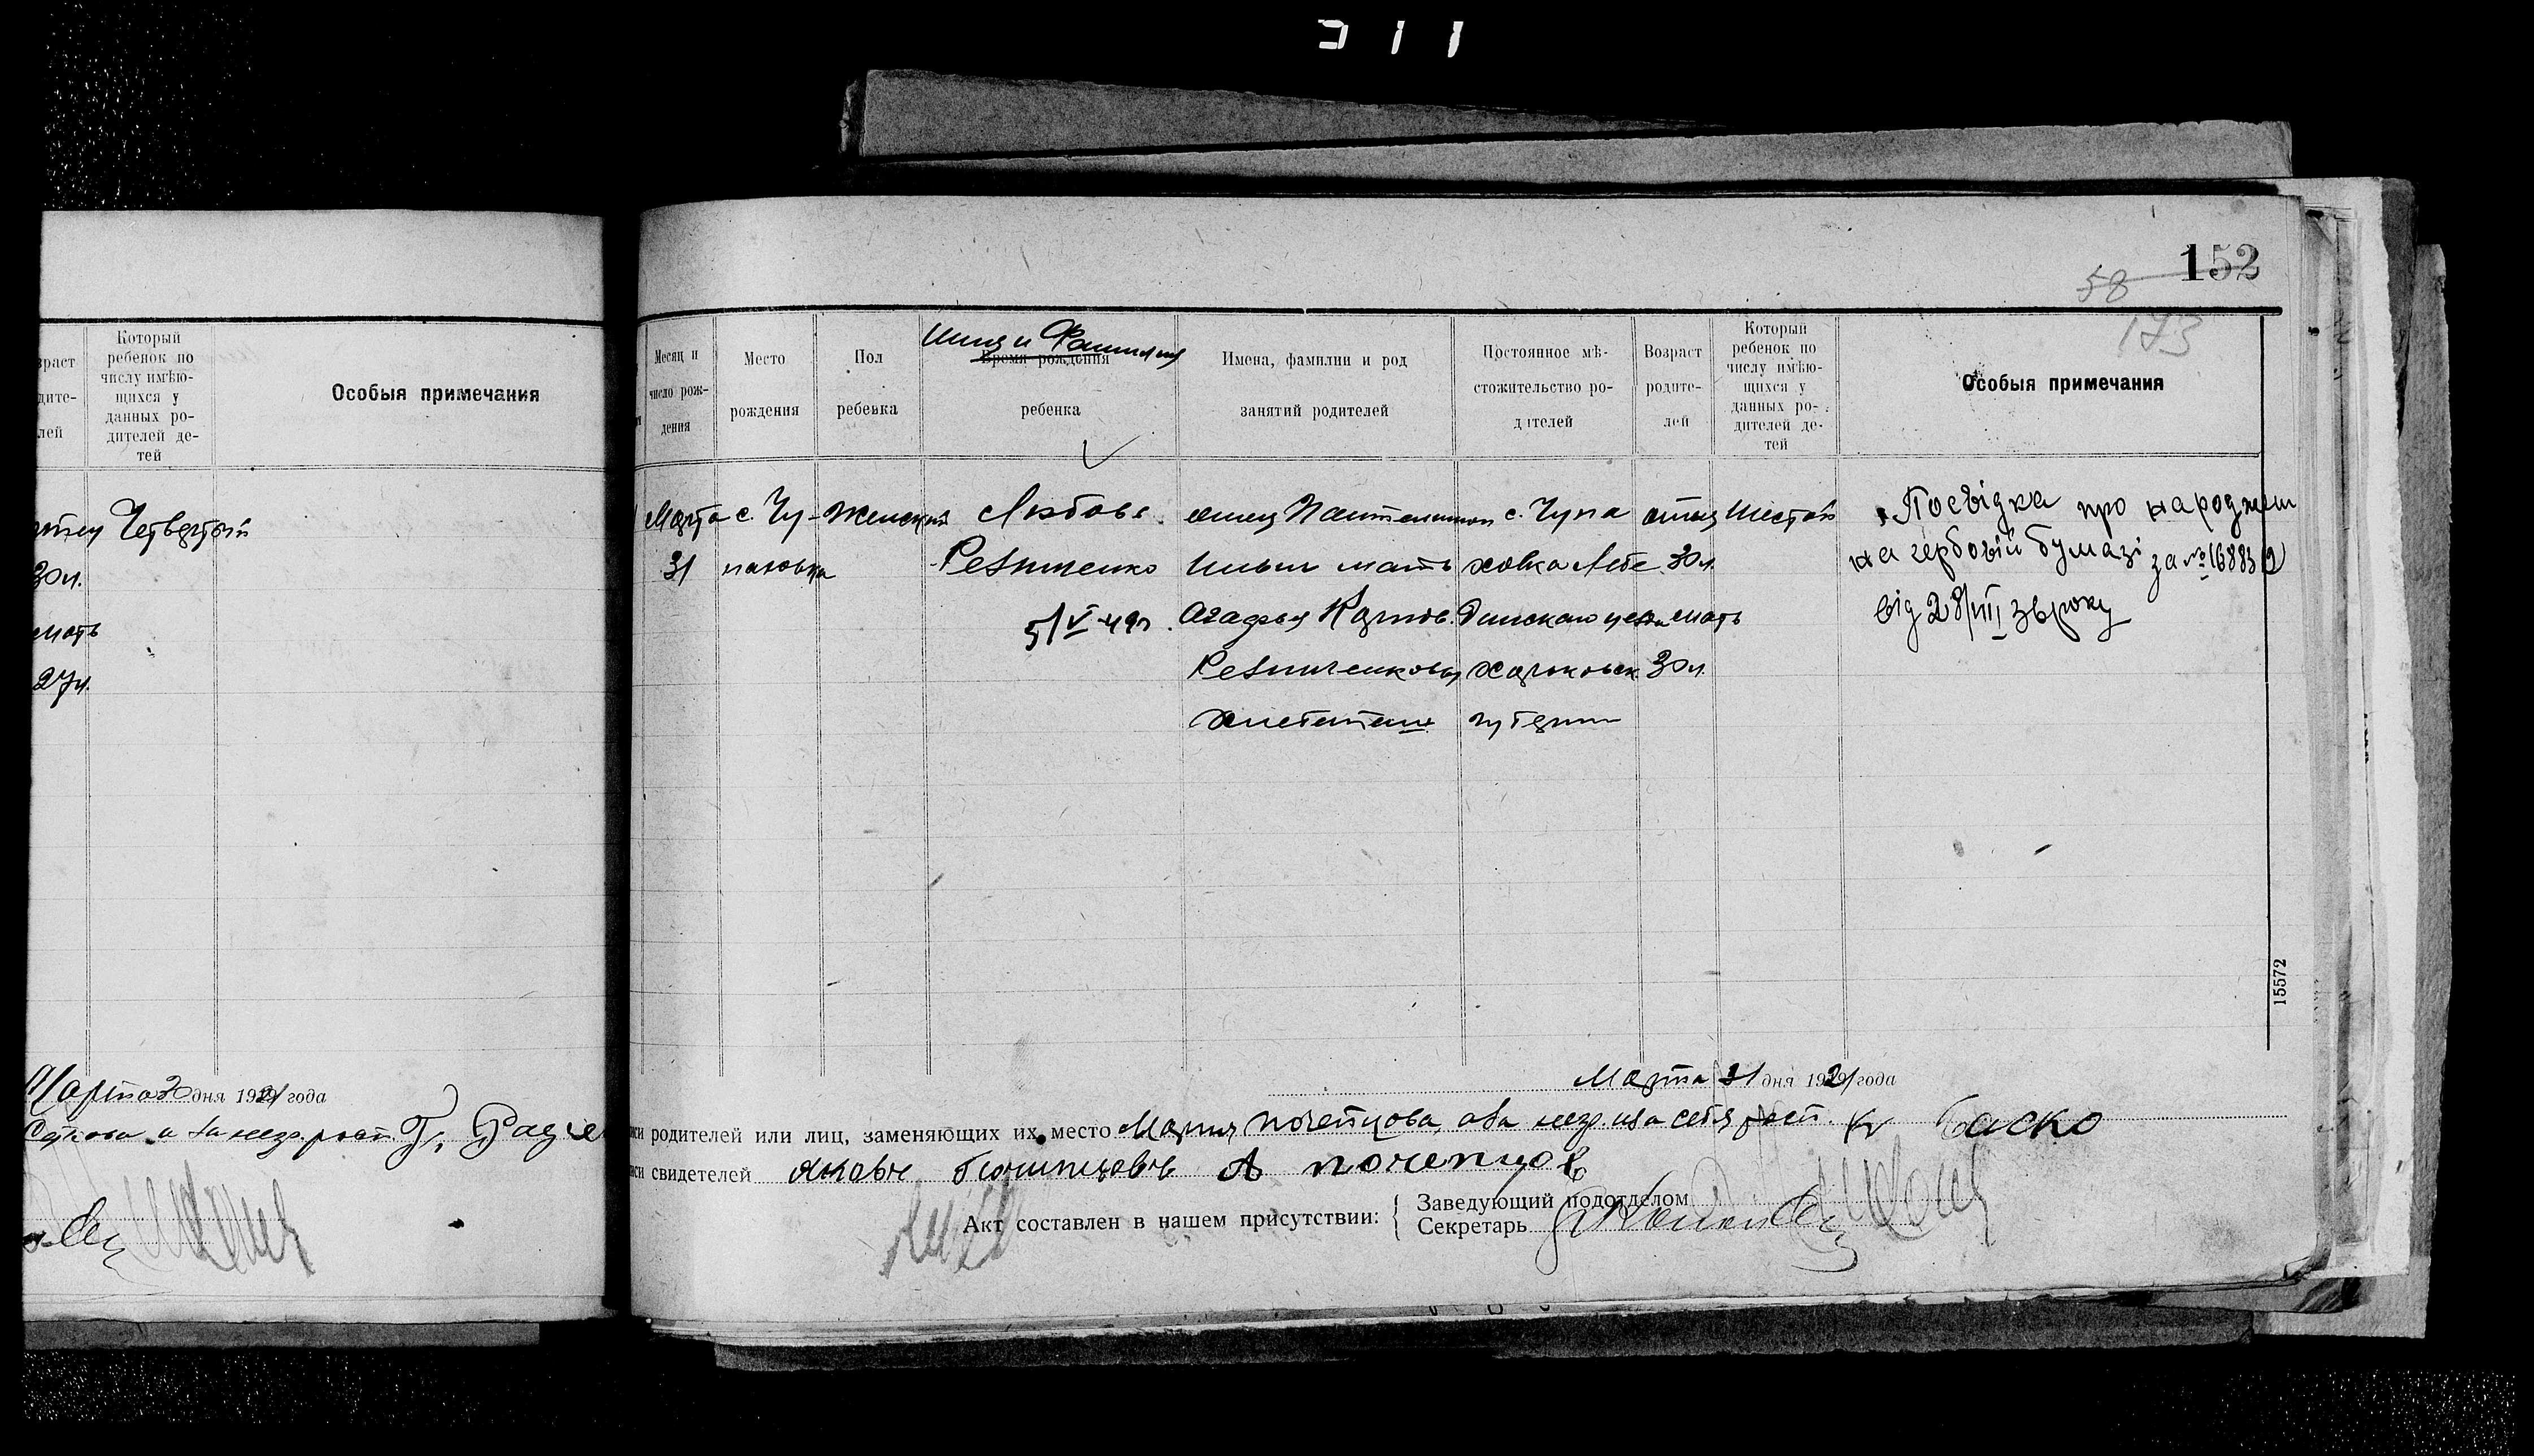 311
152
58
173
зраст
дите-
лей
Который
ребенок по
числу имѣю-
щихся у
данных ро-
дителей де-
тей
Особыя примечания
Четвертый
30 л.
мать
27 л.
Марта 30 дня 1921 года
Месяц и
число рож-
дения
Место
рождения
Пол
ребенка
Имя и Фамилия
Время рождения
ребенка
Имена, фамилии и род
занятий родителей
Постоянное мѣ-
стожительство ро-
дителей
Возраст
родите-
лей
Который
ребенок по
числу имѣю-
щихся у
данных ро-
дителей де-
тей
Особыя примечания
Марта
31
с. Чу-
паховка
Женский
Любовь
Резниченко
5/V-49г.
отец Пантелимон
Ильин мать
Агафья Карпов.
Резниченковы
хлебопашц
с. Чупа
ховка Лебе
динскаго уезда
харьковск.
губернии
отец
30 л.
мать
30 л.
Шестой
Посвідка про народжен
на гербовій бумазі за № 168832
від 28/VIII
15572
Марта 31 дня 1921 года
ки родителей или лиц, заменяющих их место Мария Почепцова, а за негр. и за себя расп. Баско
си свидетелей А почепцов
Акт составлен в нашем присутствии:
Заведующий подотделом
Секретарь